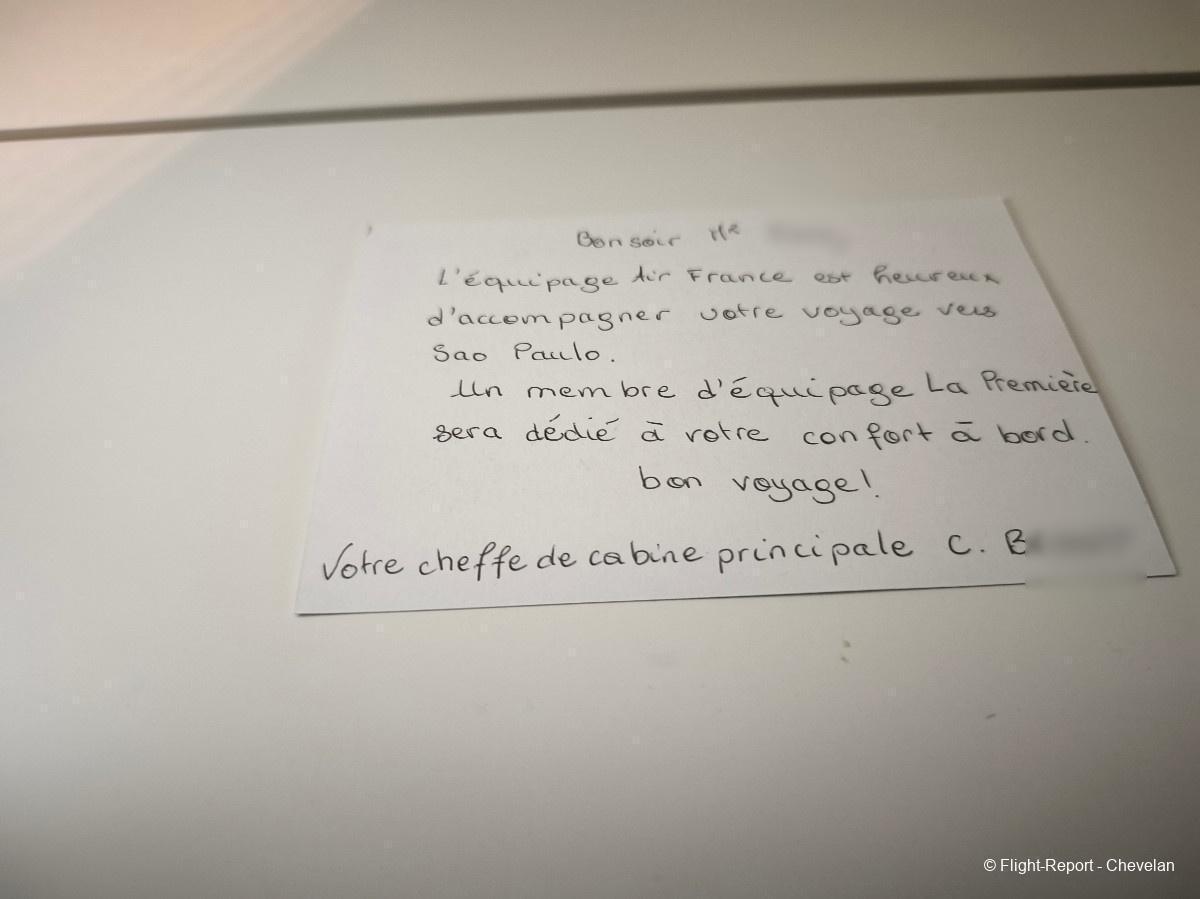 Bonsoir Mr
L'équipage Air France est heureux
d'accompagner votre voyage vers
Sao Paulo.
Un membre d'équipage La Première
sera dédié à votre confort à bord.
bon voyage!
Votre cheffe de cabine principale C. B
© Flight-Report - Chevelan